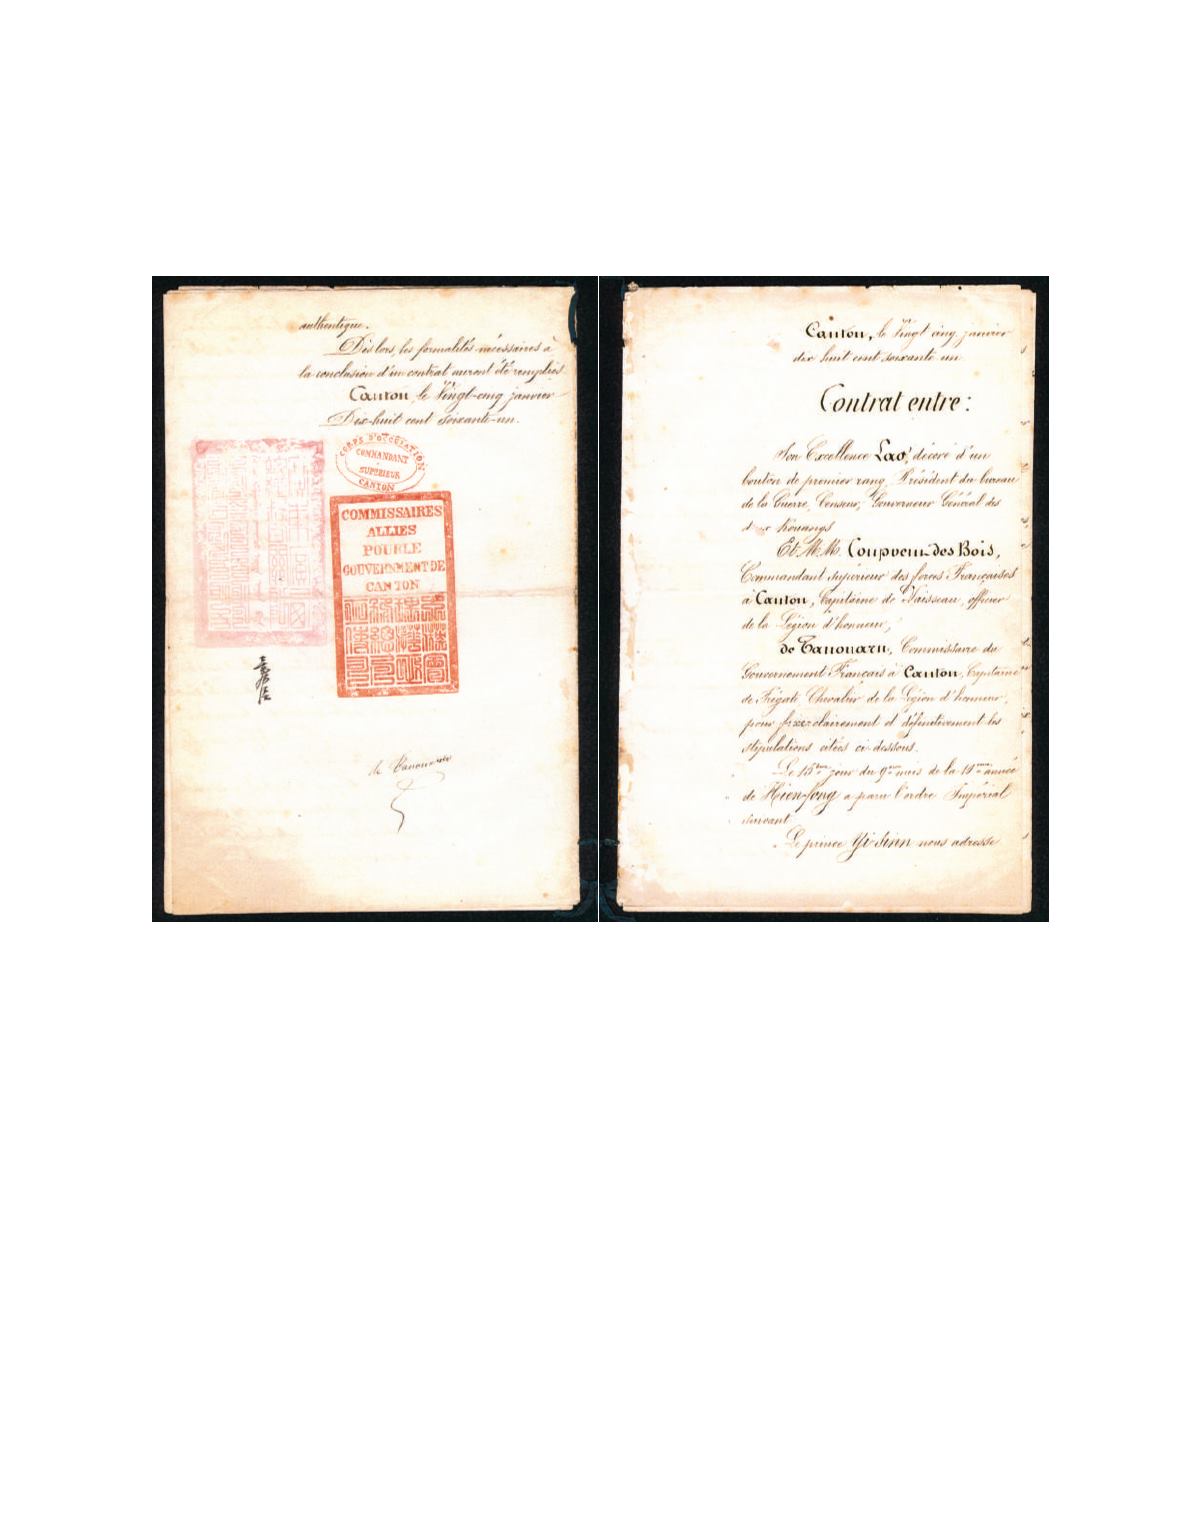 authentique.
Dès lors, les formalités nécessaires à
la conclusion d'un contrat auront été remplies.
Canton, le Vingt-cinq janvier
Dix-huit cent soixante-un.
CORPS D'OCCUPATION
COMMANDANT
SUPÉRIEUR
CANTON
COMMISSAIRES
ALLIES
POUR LE
GOUVERNMENT DE
CANTON
de Tanouarn
Canton, le Vingt cinq janvier
dix huit cent soixante un
Contrat entre:
Son Excellence Lao, décoré d'un
bouton de premier rang, Président du bureau
de la Guerre, Censeur, Gouverneur Général des
deux Kouangs
Et M.M. Coupvent-des Bois,
Commandant Supérieur des forces Françaises
à Canton, Capitaine de Vaisseau, officier
de la Légion d'honneur,
de Tanouarn, Commissaire du
Gouvernement Français à Canton, Capitaine
de Frégate, Chevalier de la Légion d'honneur,
pour fixer clairement et définitivement les
stipulations citées ci-dessous.
Le 15ème jour du 9ème mois de la 10ème année
de Hien-fong a paru l'ordre Impérial
suivant
Le prince Yi-Sinn nous adresse